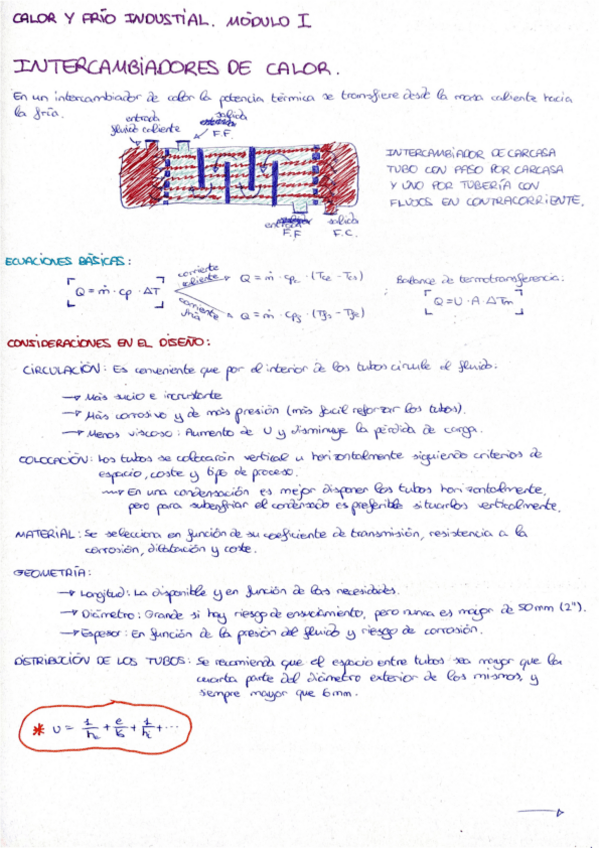 CALOR Y FRÍO INDUSTIAL. MÓDULO I
INTERCAMBIADORES DE CALOR.
En un intercambiador de calor la potencia térmica se transfiere desde la masa caliente hacia
la fría.
entrada
fluido caliente
salida
F.F.
INTERCAMBIADOR DE CARCASA
TUBO CON PASO POR CARCASA
Y UNO POR TUBERÍA CON
FLUJOS EN CONTRACORRIENTE.
entrada
F.F
salida
F.C.
ECUACIONES BÁSICAS:
Q = ṁ · cp · ΔT
corriente
caliente
Q = ṁ · cpc · (Tce - Tcs)
corriente
fría
Q = ṁ · cpf · (Tfs - Tfe)
Balance de termotransferencia:
Q = U · A · ΔTm
CONSIDERACIONES EN EL DISEÑO:
CIRCULACIÓN: Es conveniente que por el interior de los tubos circule el fluido:
→ Más sucio e incrustante
→ Más corrosivo y de más presión (más fácil reforzar los tubos).
→ Menos viscoso: Aumento de U y disminuye la pérdida de carga.
COLOCACIÓN: Los tubos se colocarán vertical u horizontalmente siguiendo criterios de
espacio, coste y tipo de proceso.
→ En una condensación es mejor disponer los tubos horizontalmente,
pero para subenfriar el condensado es preferible situarlos verticalmente.
MATERIAL: Se selecciona en función de su coeficiente de transmisión, resistencia a la
corrosión, dilatación y coste.
GEOMETRÍA:
→ Longitud: La disponible y en función de las necesidades.
→ Diámetro: Grande si hay riesgo de ensuciamiento, pero nunca es mayor de 50mm (2").
→ Espesor: En función de la presión del fluido y riesgo de corrosión.
DISTRIBUCIÓN DE LOS TUBOS: Se recomienda que el espacio entre tubos sea mayor que la
cuarta parte del diámetro exterior de los mismos, y
siempre mayor que 6mm.
* U = 1/hc + e/k + 1/hi + ...